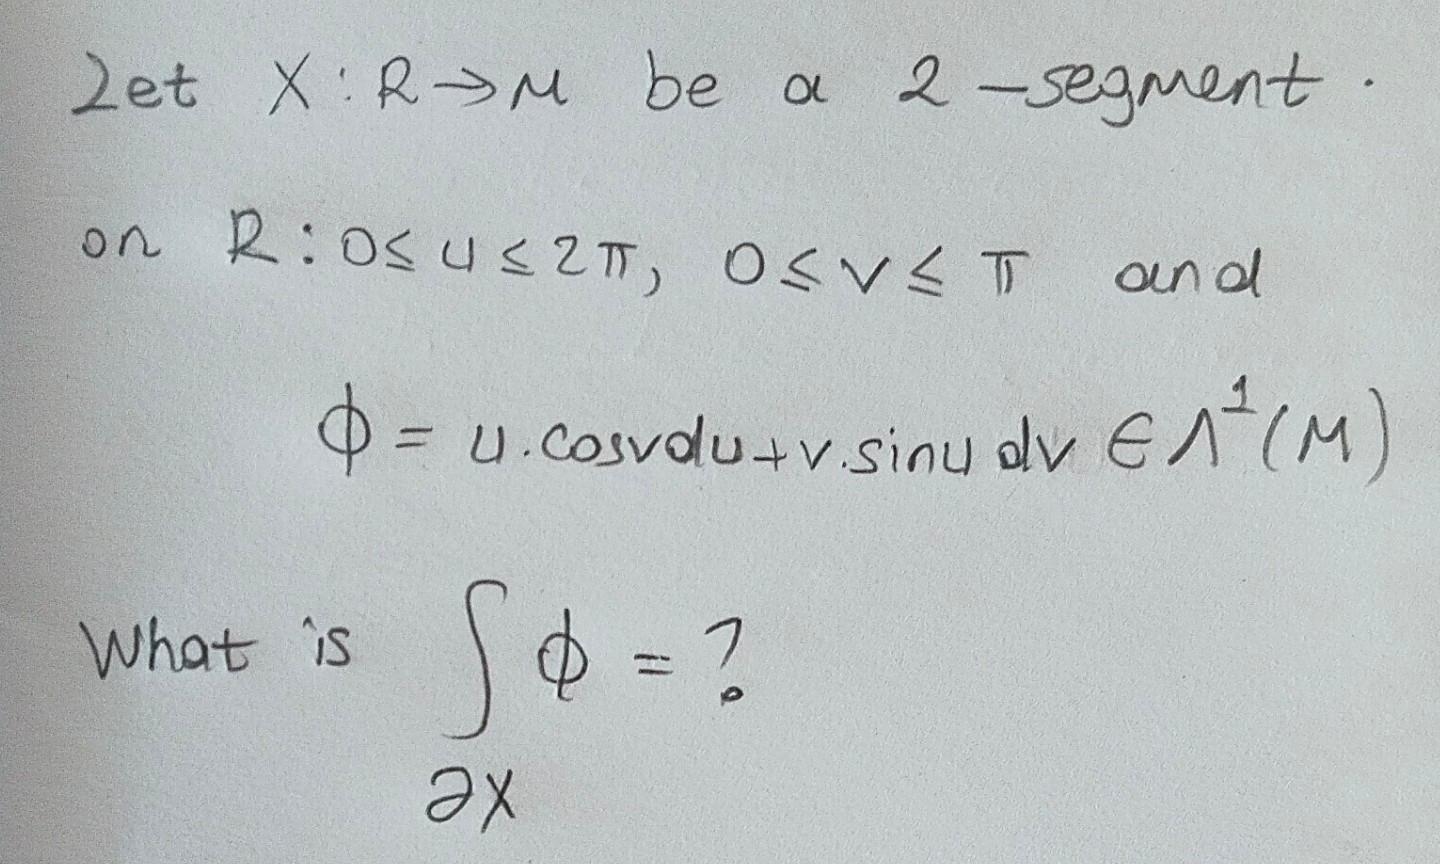 Let X : R → M be a 2-segment.
on R : 0 ≤ u ≤ 2π, 0 ≤ v ≤ π and
ϕ = u.cosvdu + v.sinu dv ∈ Λ¹(M)
What is ∫ ϕ = ?
∂X